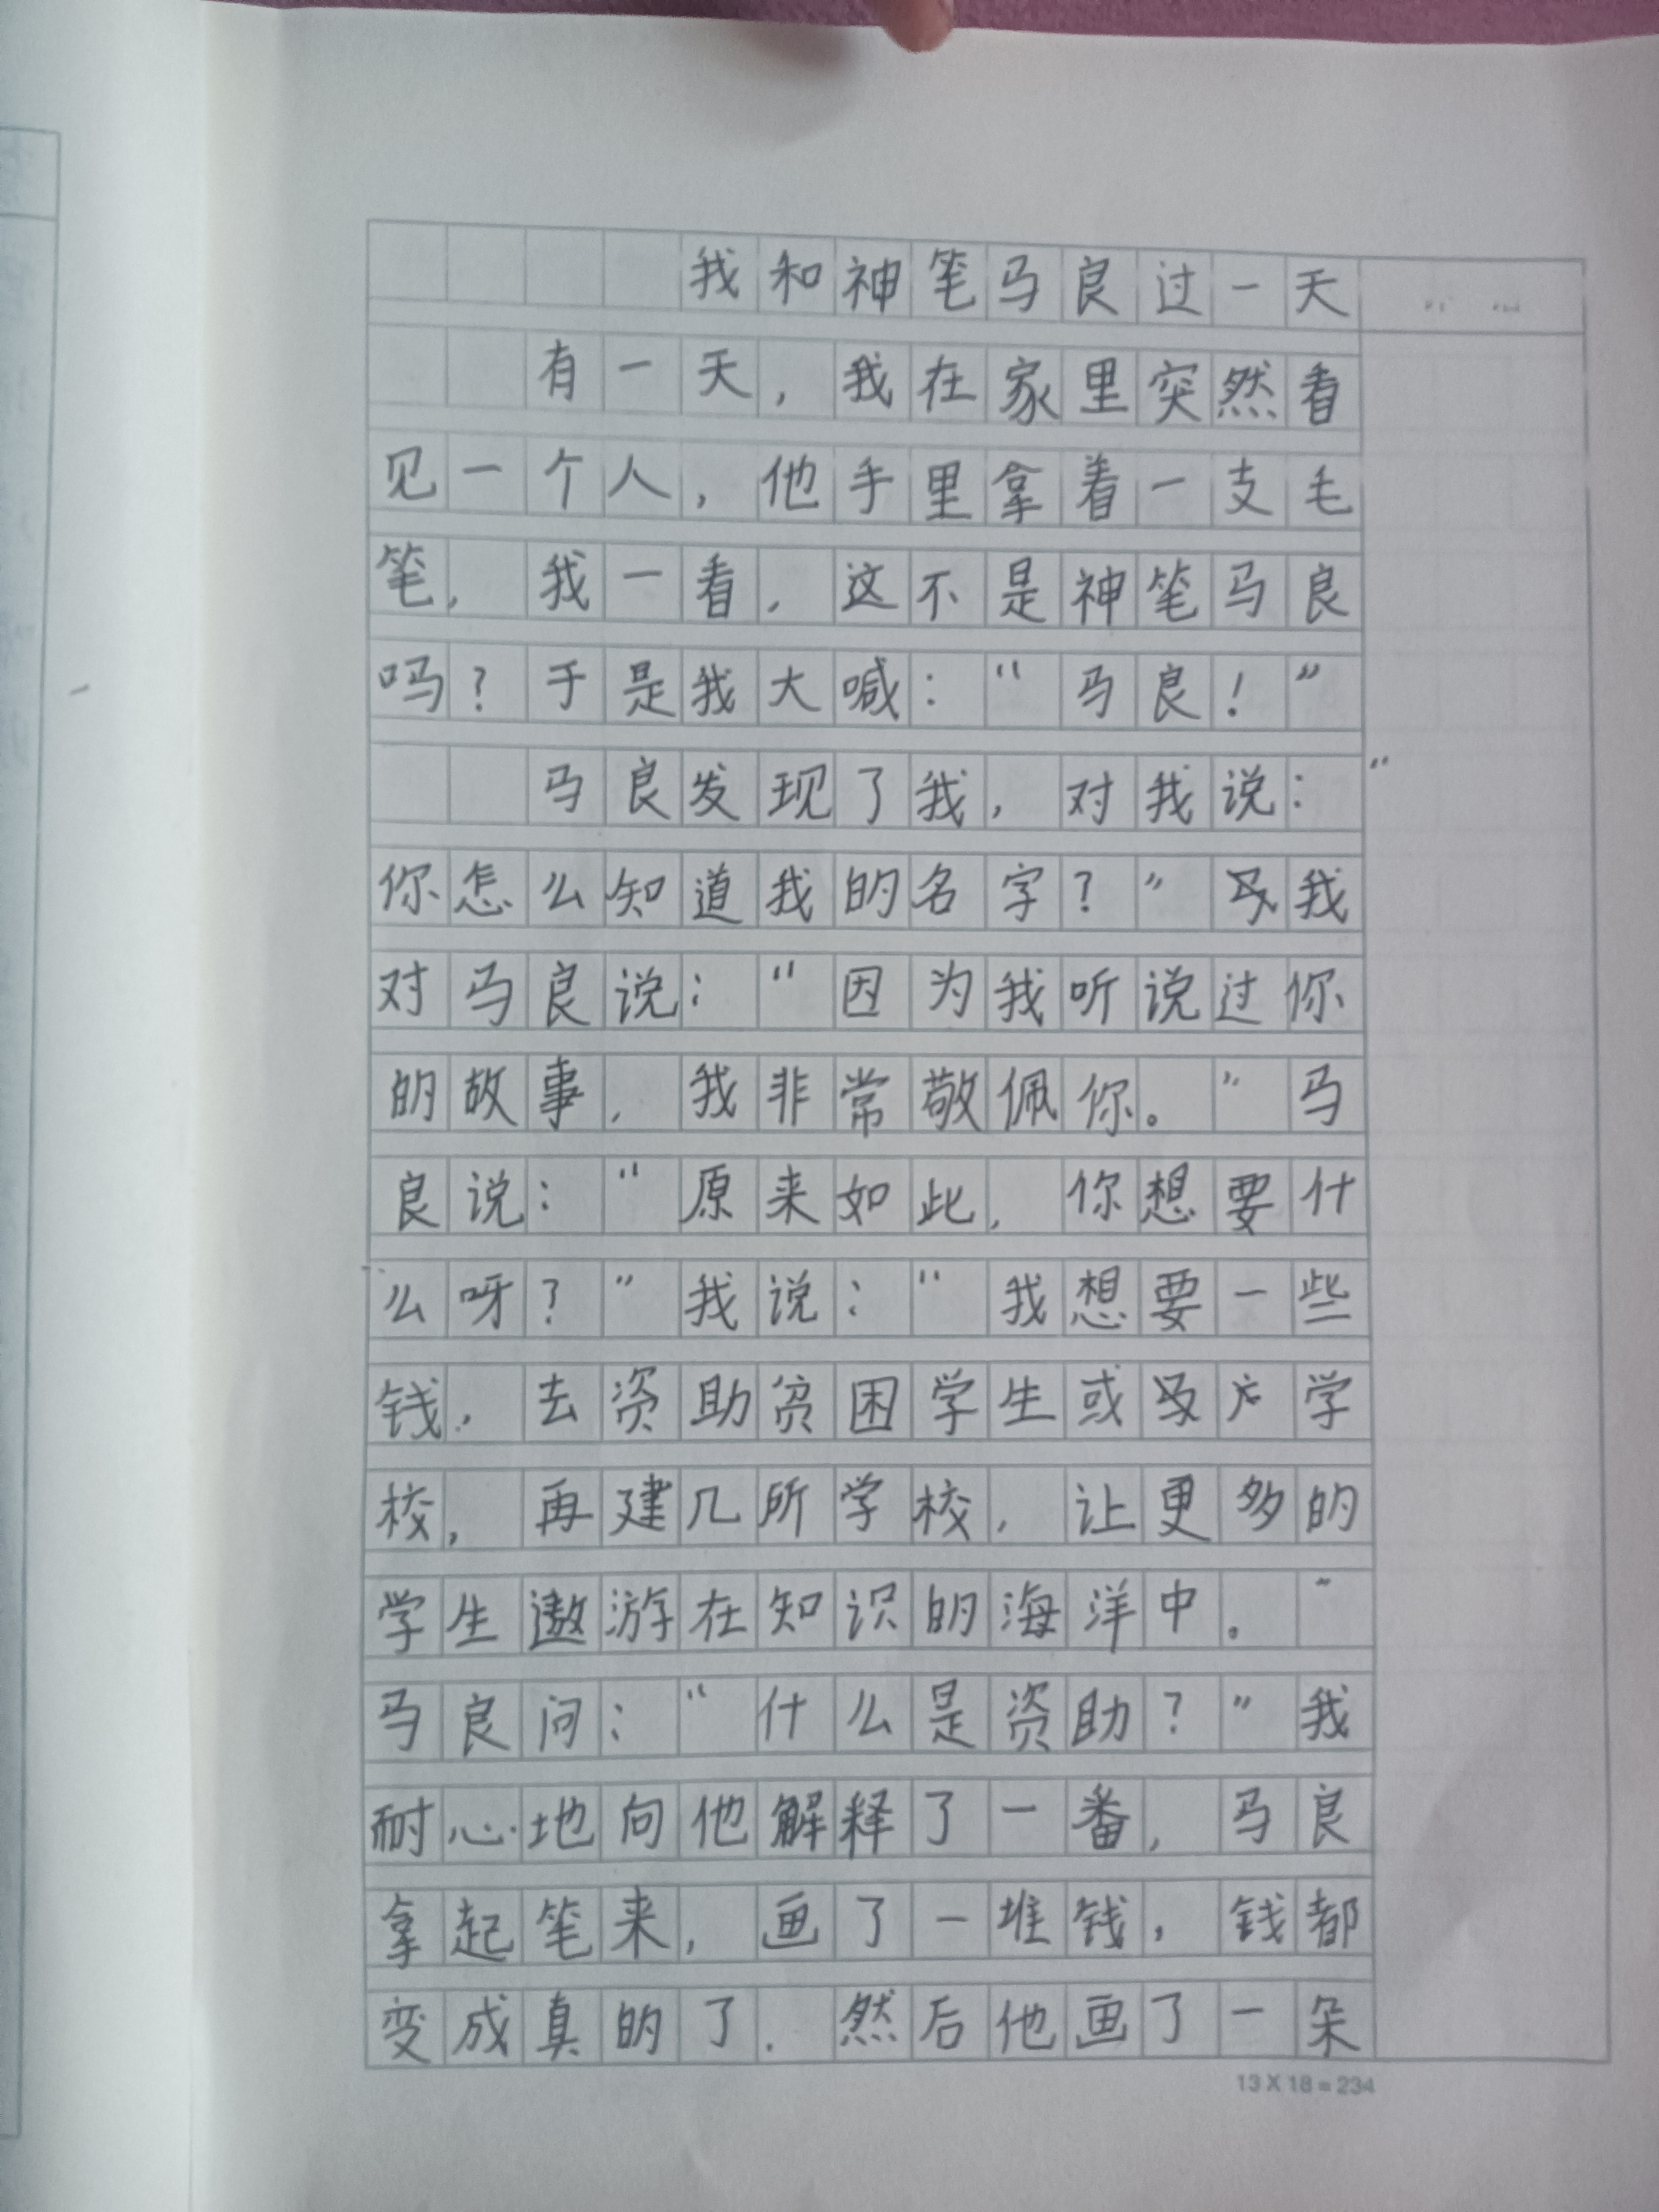 我和神笔马良过一天
有一天，我在家里突然看
见一个人，他手里拿着一支毛
笔，我一看，这不是神笔马良
吗？于是我大喊：“马良！”
马良发现了我，对我说：“
你怎么知道我的名字？”我
对马良说：“因为我听说过你
的故事，我非常敬佩你。”马
良说：“原来如此，你想要什
么呀？”我说：“我想要一些
钱，去资助贫困学生或学
校，再建几所学校，让更多的
学生遨游在知识的海洋中。”
马良问：“什么是资助？”我
耐心地向他解释了一番，马良
拿起笔来，画了一堆钱，钱都
变成真的了．然后他画了一朵
13 X 18 = 234